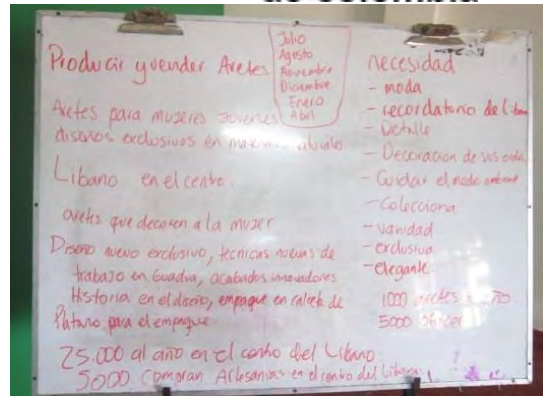 de colombia
Producir y vender Aretes
Julio
Agosto
Noviembre
Diciembre
Enero
Abril
Aretes para mujeres jovenes
diseños exclusivos en
Libano en el centro.
aretes que decoren a la mujer
Diseño nuevo exclusivo, tecnicas nuevas de
trabajo en Guadua, acabados innovadores
Historia en el diseño, empaque en de
Platano, para el empaque.
25.000 al año en el centro del Libano
5000 Compran Artesanias en el centro del Libano
necesidad
- moda
- recordatorio de
- Detalle
- Decoracion de sus
- Cuidar el medio ambiente
- Colecciona
- vanidad
- exclusiva
- elegante
1000 aretes
5000